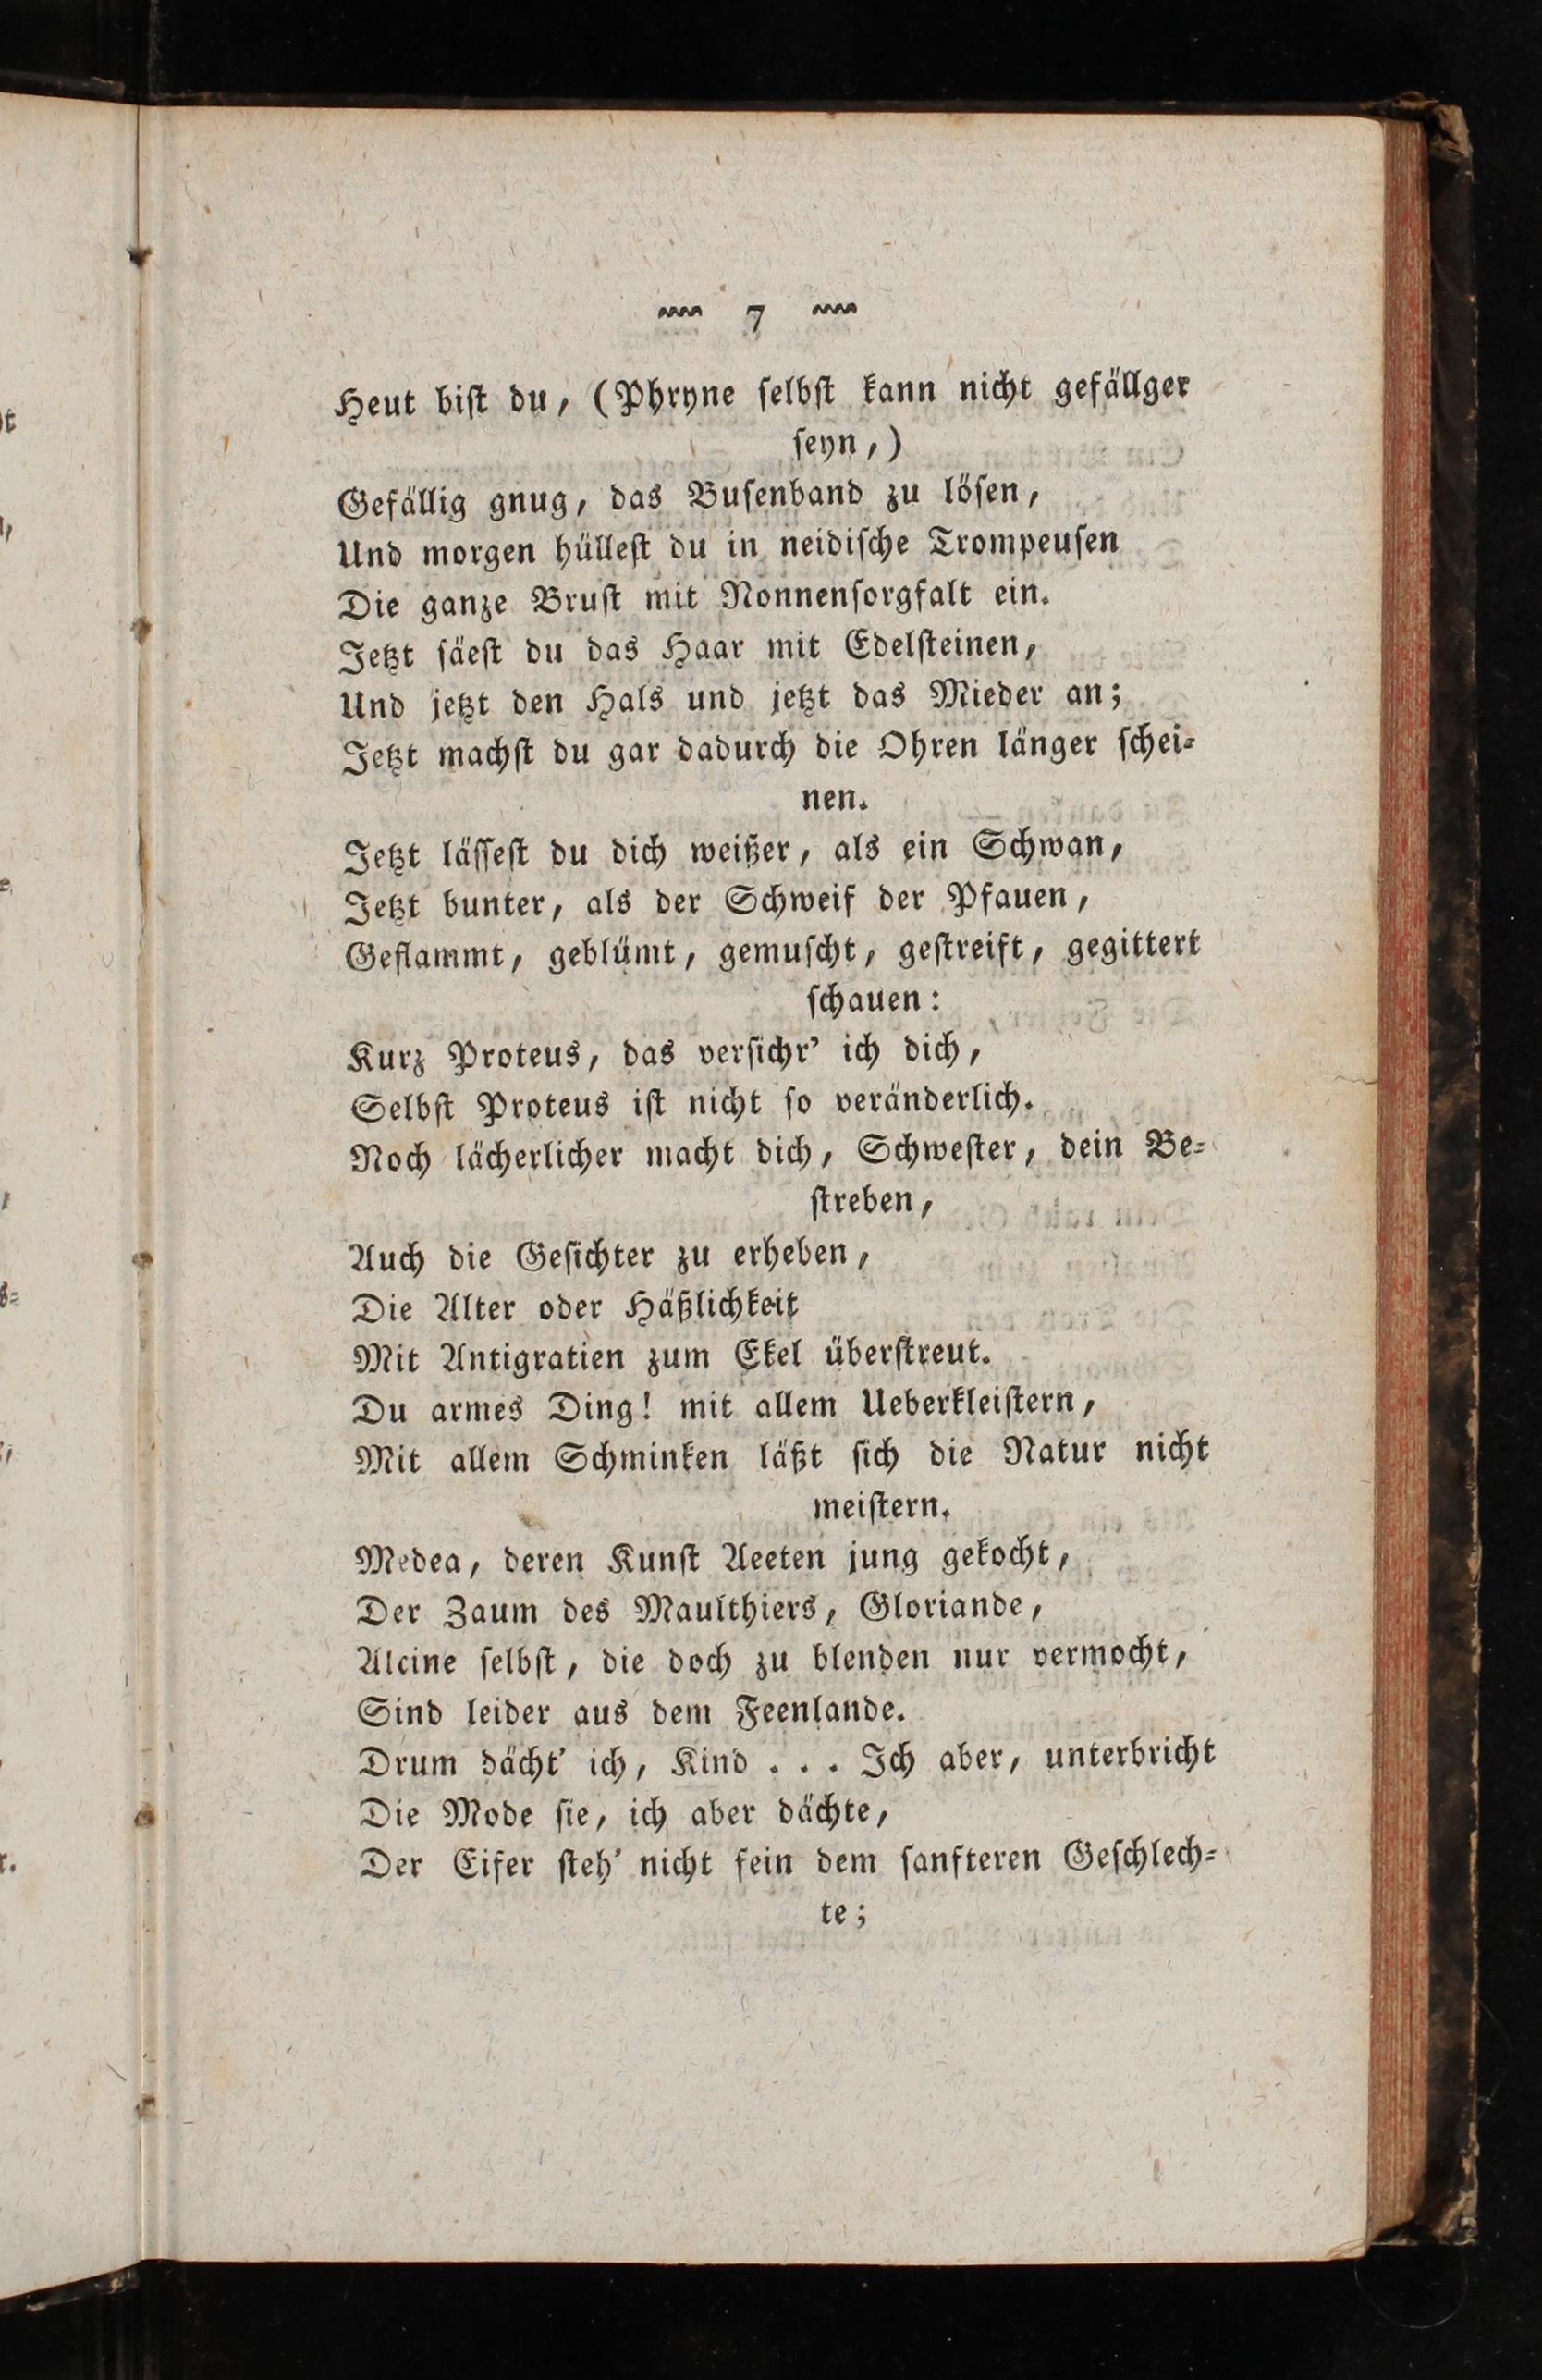 7
Heut biſt du, (Phryne ſelbſt kann nicht gefällger
ſeyn,)
Gefällig gnug, das Buſenband zu löſen,
Und morgen hülleſt du in neidiſche Trompeuſen
Die ganze Bruſt mit Nonnenſorgfalt ein.
Jetzt ſäeſt du das Haar mit Edelſteinen,
Und jetzt den Hals und jetzt das Mieder an;
Jetzt machſt du gar dadurch die Ohren länger ſchei⸗
nen.
Jetzt läſſeſt du dich weißer, als ein Schwan,
Jetzt bunter, als der Schweif der Pfauen,
Geflammt, geblümt, gemuſcht, geſtreift, gegittert
ſchauen:
Kurz Proteus, das verſichr' ich dich,
Selbſt Proteus iſt nicht ſo veränderlich.
Noch lächerlicher macht dich, Schweſter, dein Be⸗
ſtreben,
Auch die Geſichter zu erheben,
Die Alter oder Häßlichkeit
Mit Antigratien zum Ekel überſtreut.
Du armes Ding! mit allem Ueberkleiſtern,
Mit allem Schminken läßt ſich die Natur nicht
meiſtern.
Medea, deren Kunſt Aeeten jung gekocht,
Der Zaum des Maulthiers, Gloriande,
Alcine ſelbſt, die doch zu blenden nur vermocht,
Sind leider aus dem Feenlande.
Drum dächt' ich, Kind . . . Ich aber, unterbricht
Die Mode ſie, ich aber dächte,
Der Eifer ſteh' nicht fein dem ſanfteren Geſchlech⸗
te;